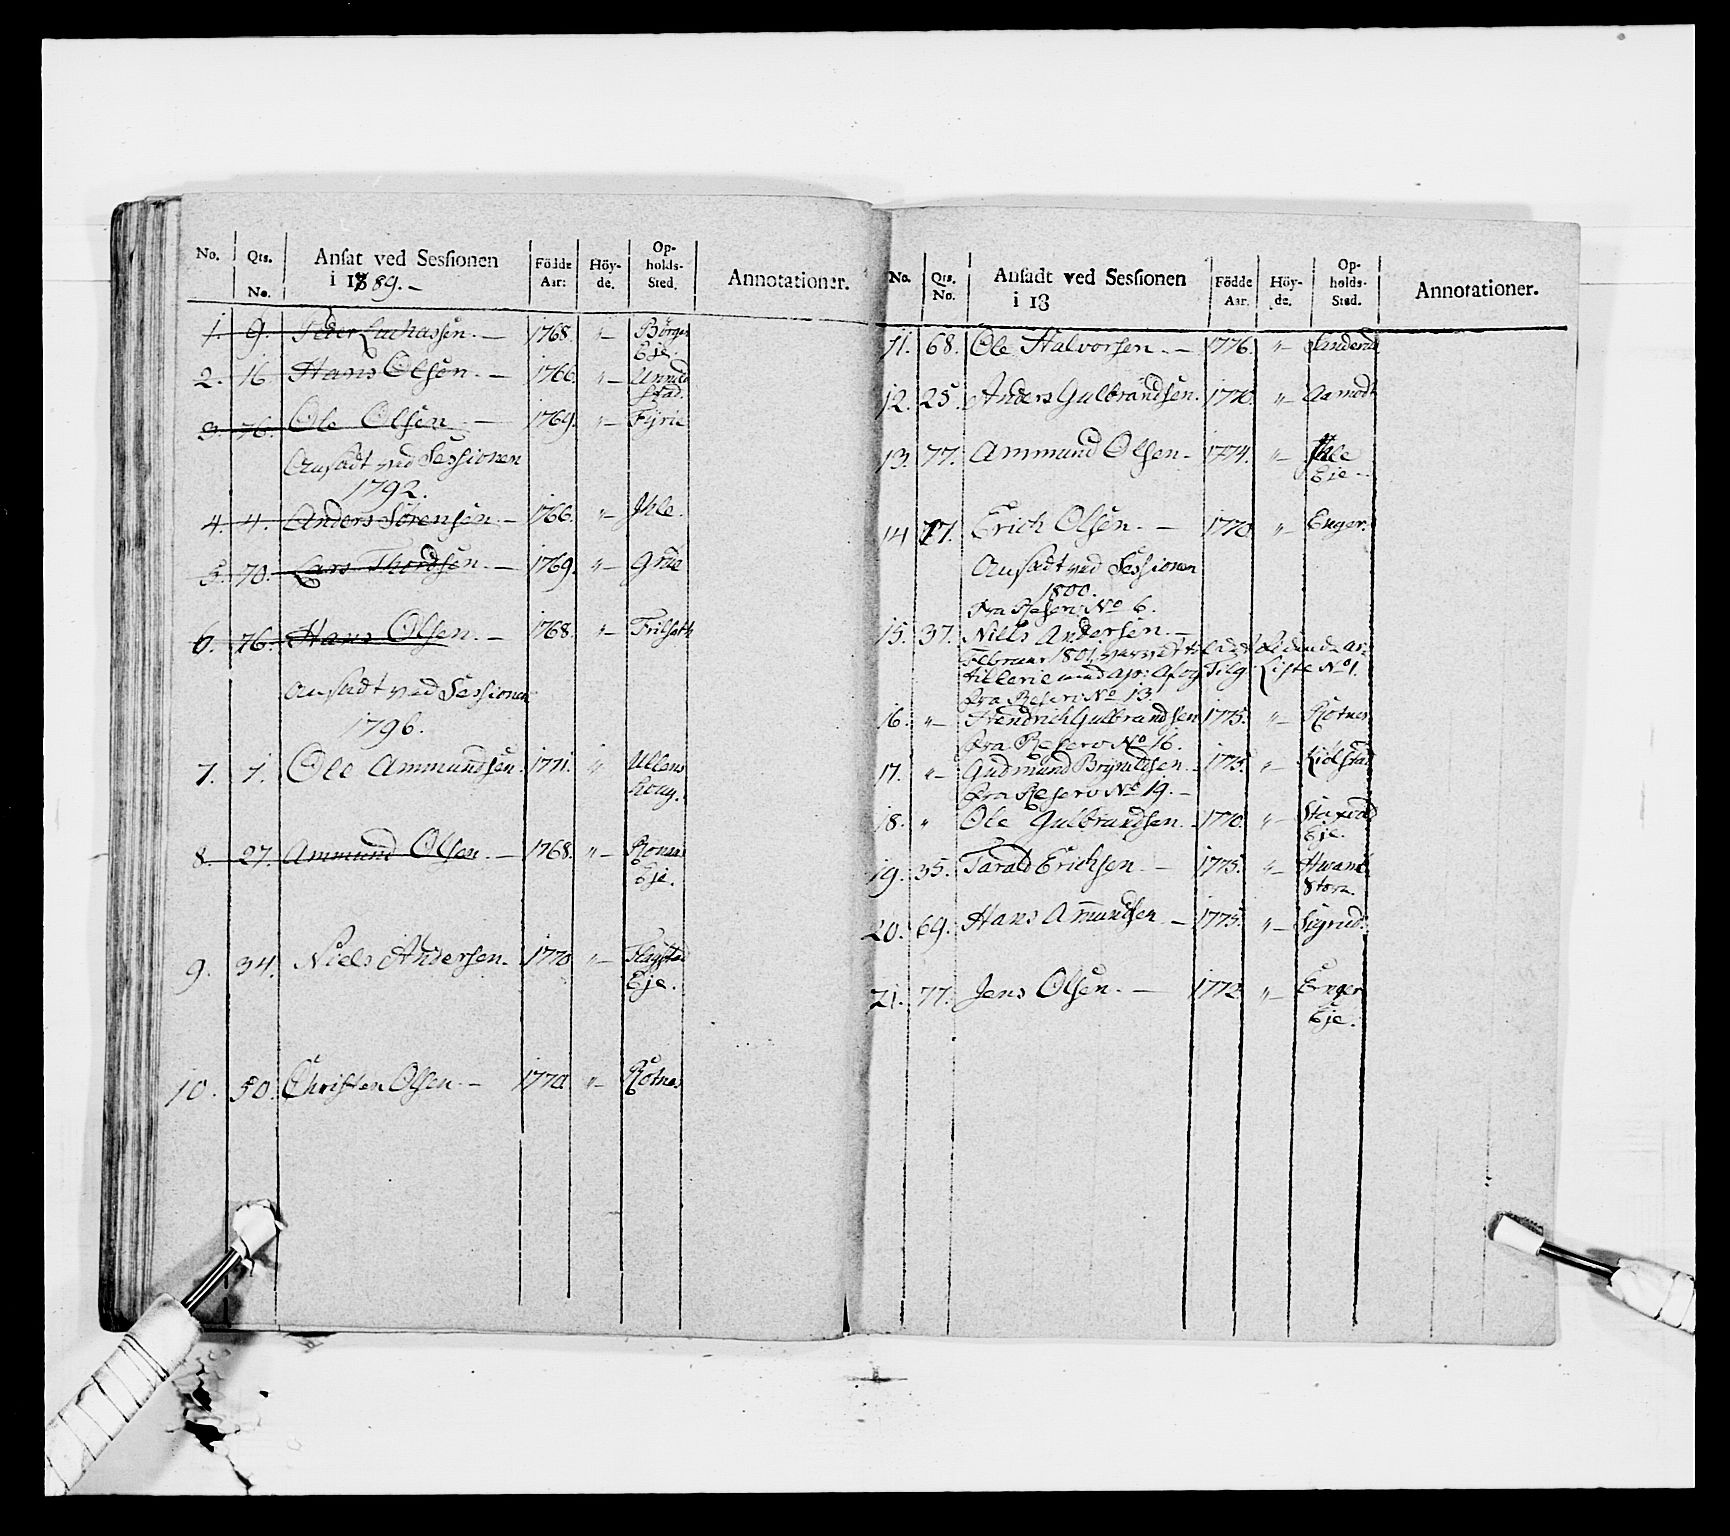 No. Qts. No. Ansat ved Sessionen i 1789.- Födde Aar: Höy-de. Op-holds-Sted. Annotationer.
1. 9. Peder Zachassen. — 1768. "— Börger Eje
2. 16. Hans Olsen. — 1766. "— Stad.
3. 76. Ole Olsen — 1769. "— Fyrie
Ansadt ved Sessionen
1792.
4. 4. Anders Sörensen. — 1766. "— Ihle.
5. 70. Lars Thordsen. — 1769. "— Grue
6. 76. Hans Olsen. — 1768. "— Frilseth
Ansadt ved Sessionen
1796.
7. 1. Ole Ammundsen. 1771. " Ullens
8. 27. Ammund Olsen. — 1768. "— Eje.
9. 34. Niels Andersen. 1770 "— Eje.
10. 50. Christen Olsen. — 1770 "— Rotnes
No. Qts. No. Ansadt ved Sessionen i 18 Födde Aar. Höy-de. Op-holds-Sted. Annotationer.
11. 68. Ole Halvorsen. — 1776. "—
12. 25. Anders Gulbrandsen. 1770. "— Aamodt
13. 77. Ammund Olsen. 1774. "— Ihle
Eje.
14 77. Erich Olsen. — 1770 "— Enger.
Ansadt ved Sessionen
1800.
Fra Reserv No 6.
15. 37. Niels Andersen.
Februar 1801 til Ar-
tillerie Afog Tilg Liste No 1.
Fra Reserv No 13
16. "— Hendrich Gulbrandsen 1775. "— Rotnes
Fra Reserv No 16.
17. "— Gudmund Brynildsen. 1775. "— Kiölstad
Fra Reserv No 19. —
18. " Ole Gulbrandsen. 1770. "—
Eje.
19. 35. Tarald Erichsen. — 1775. "—
Store.
20. 69. Hans Amundsen — 1775. "— Sigrud.
21. 77. Jens Olsen. — 1772. "— Enger
Eje.